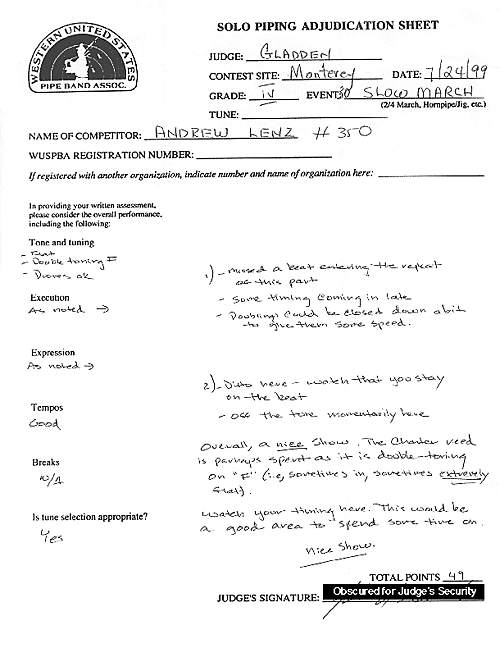 WESTERN UNITED STATES
PIPE BAND ASSOC.
SOLO PIPING ADJUDICATION SHEET
JUDGE: GLADDEN
CONTEST SITE: Monterey DATE: 7/24/99
GRADE: IV EVENT: 30 SLOW MARCH
(2/4 March, Hornpipe/Jig, etc.)
TUNE:
NAME OF COMPETITOR: ANDREW LENZ #350
WUSPBA REGISTRATION NUMBER:
If registered with another organization, indicate number and name of organization here:
In providing your written assessment,
please consider the overall performance,
including the following:
Tone and tuning
- Flat
- Double toning F
- Drones ok
Execution
As noted →
Expression
As noted →
Tempos
Good
Breaks
N/A
Is tune selection appropriate?
Yes
1) - missed a beat entering the repeat
of this part
- Some timing coming in late
- Doublings could be closed down a bit
to give them some speed.
2) - Ditto here - watch that you stay
on the beat
- off the tune momentarily here
Overall, a nice show. The Chanter reed
is perhaps spent as it is double-toning
on "F" (i.e, sometimes in, sometimes extremely
flat).
Watch your timing here. This would be
a good area to spend some time on.
Nice show.
TOTAL POINTS 49
JUDGE'S SIGNATURE:
Obscured for Judge's Security